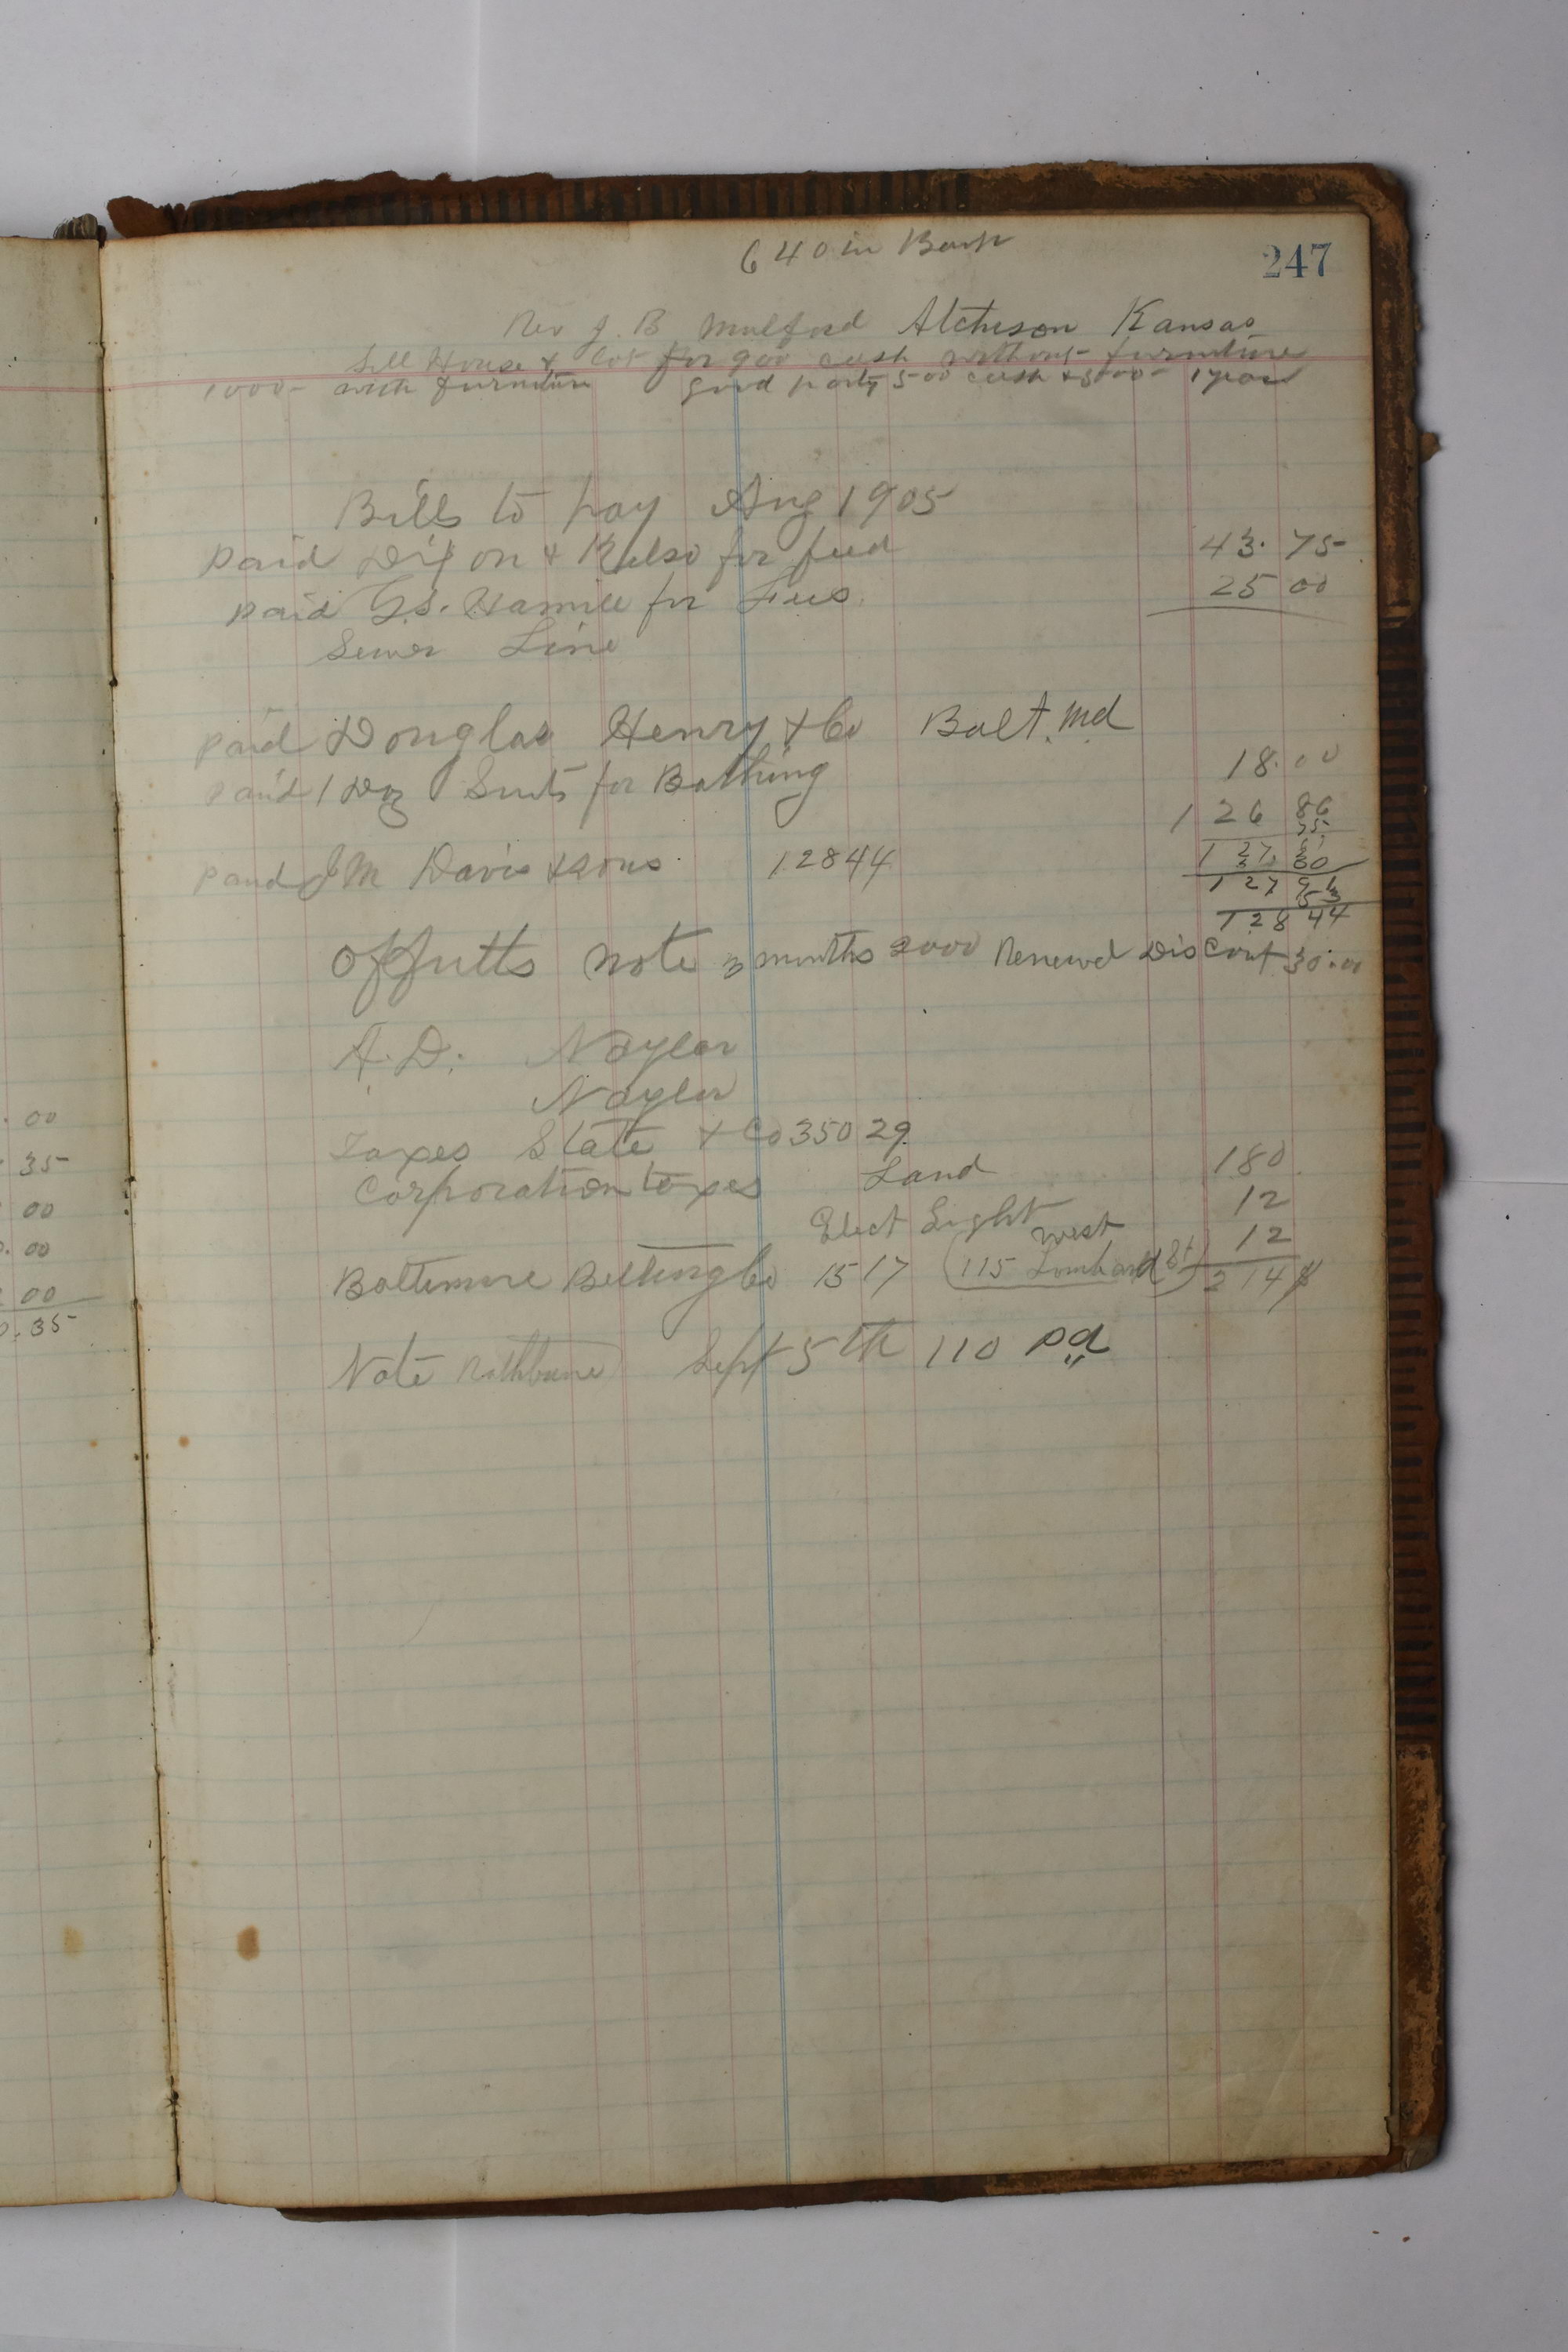 640 in Bank
247
Rev J. B Mulford Atcheson Kansas
Sell House & lot for 900 cash without furniture
1000 - with furniture good party 500 cash & 500 - 1 year
Bills to pay Aug 1905
paid Dixon & Kelso for feed 43. 75
paid G.S. Hamill for Fees. 25 00
Sewer Line
paid Douglas Henry & Co Balt. Md
paid 1 Doz Suits for Bathing 18. 00
1 26 86
75
1 27. 61
paid J M Davis & sons 128 44 30
1 27 91
53
128 44
Offutts note 3 months 2000 Renewd Discont 30.00
A. D. Naylor
Naylor
Taxes State & Co 350 29
Corporation taxes Land 180
Elect Light 12
west 12
Baltimore Belting Co 15 17 (115 Lombard St) 214
Note Rathbone Sept 5th 110 pd
. 00
35
00
. 00
00
. 35